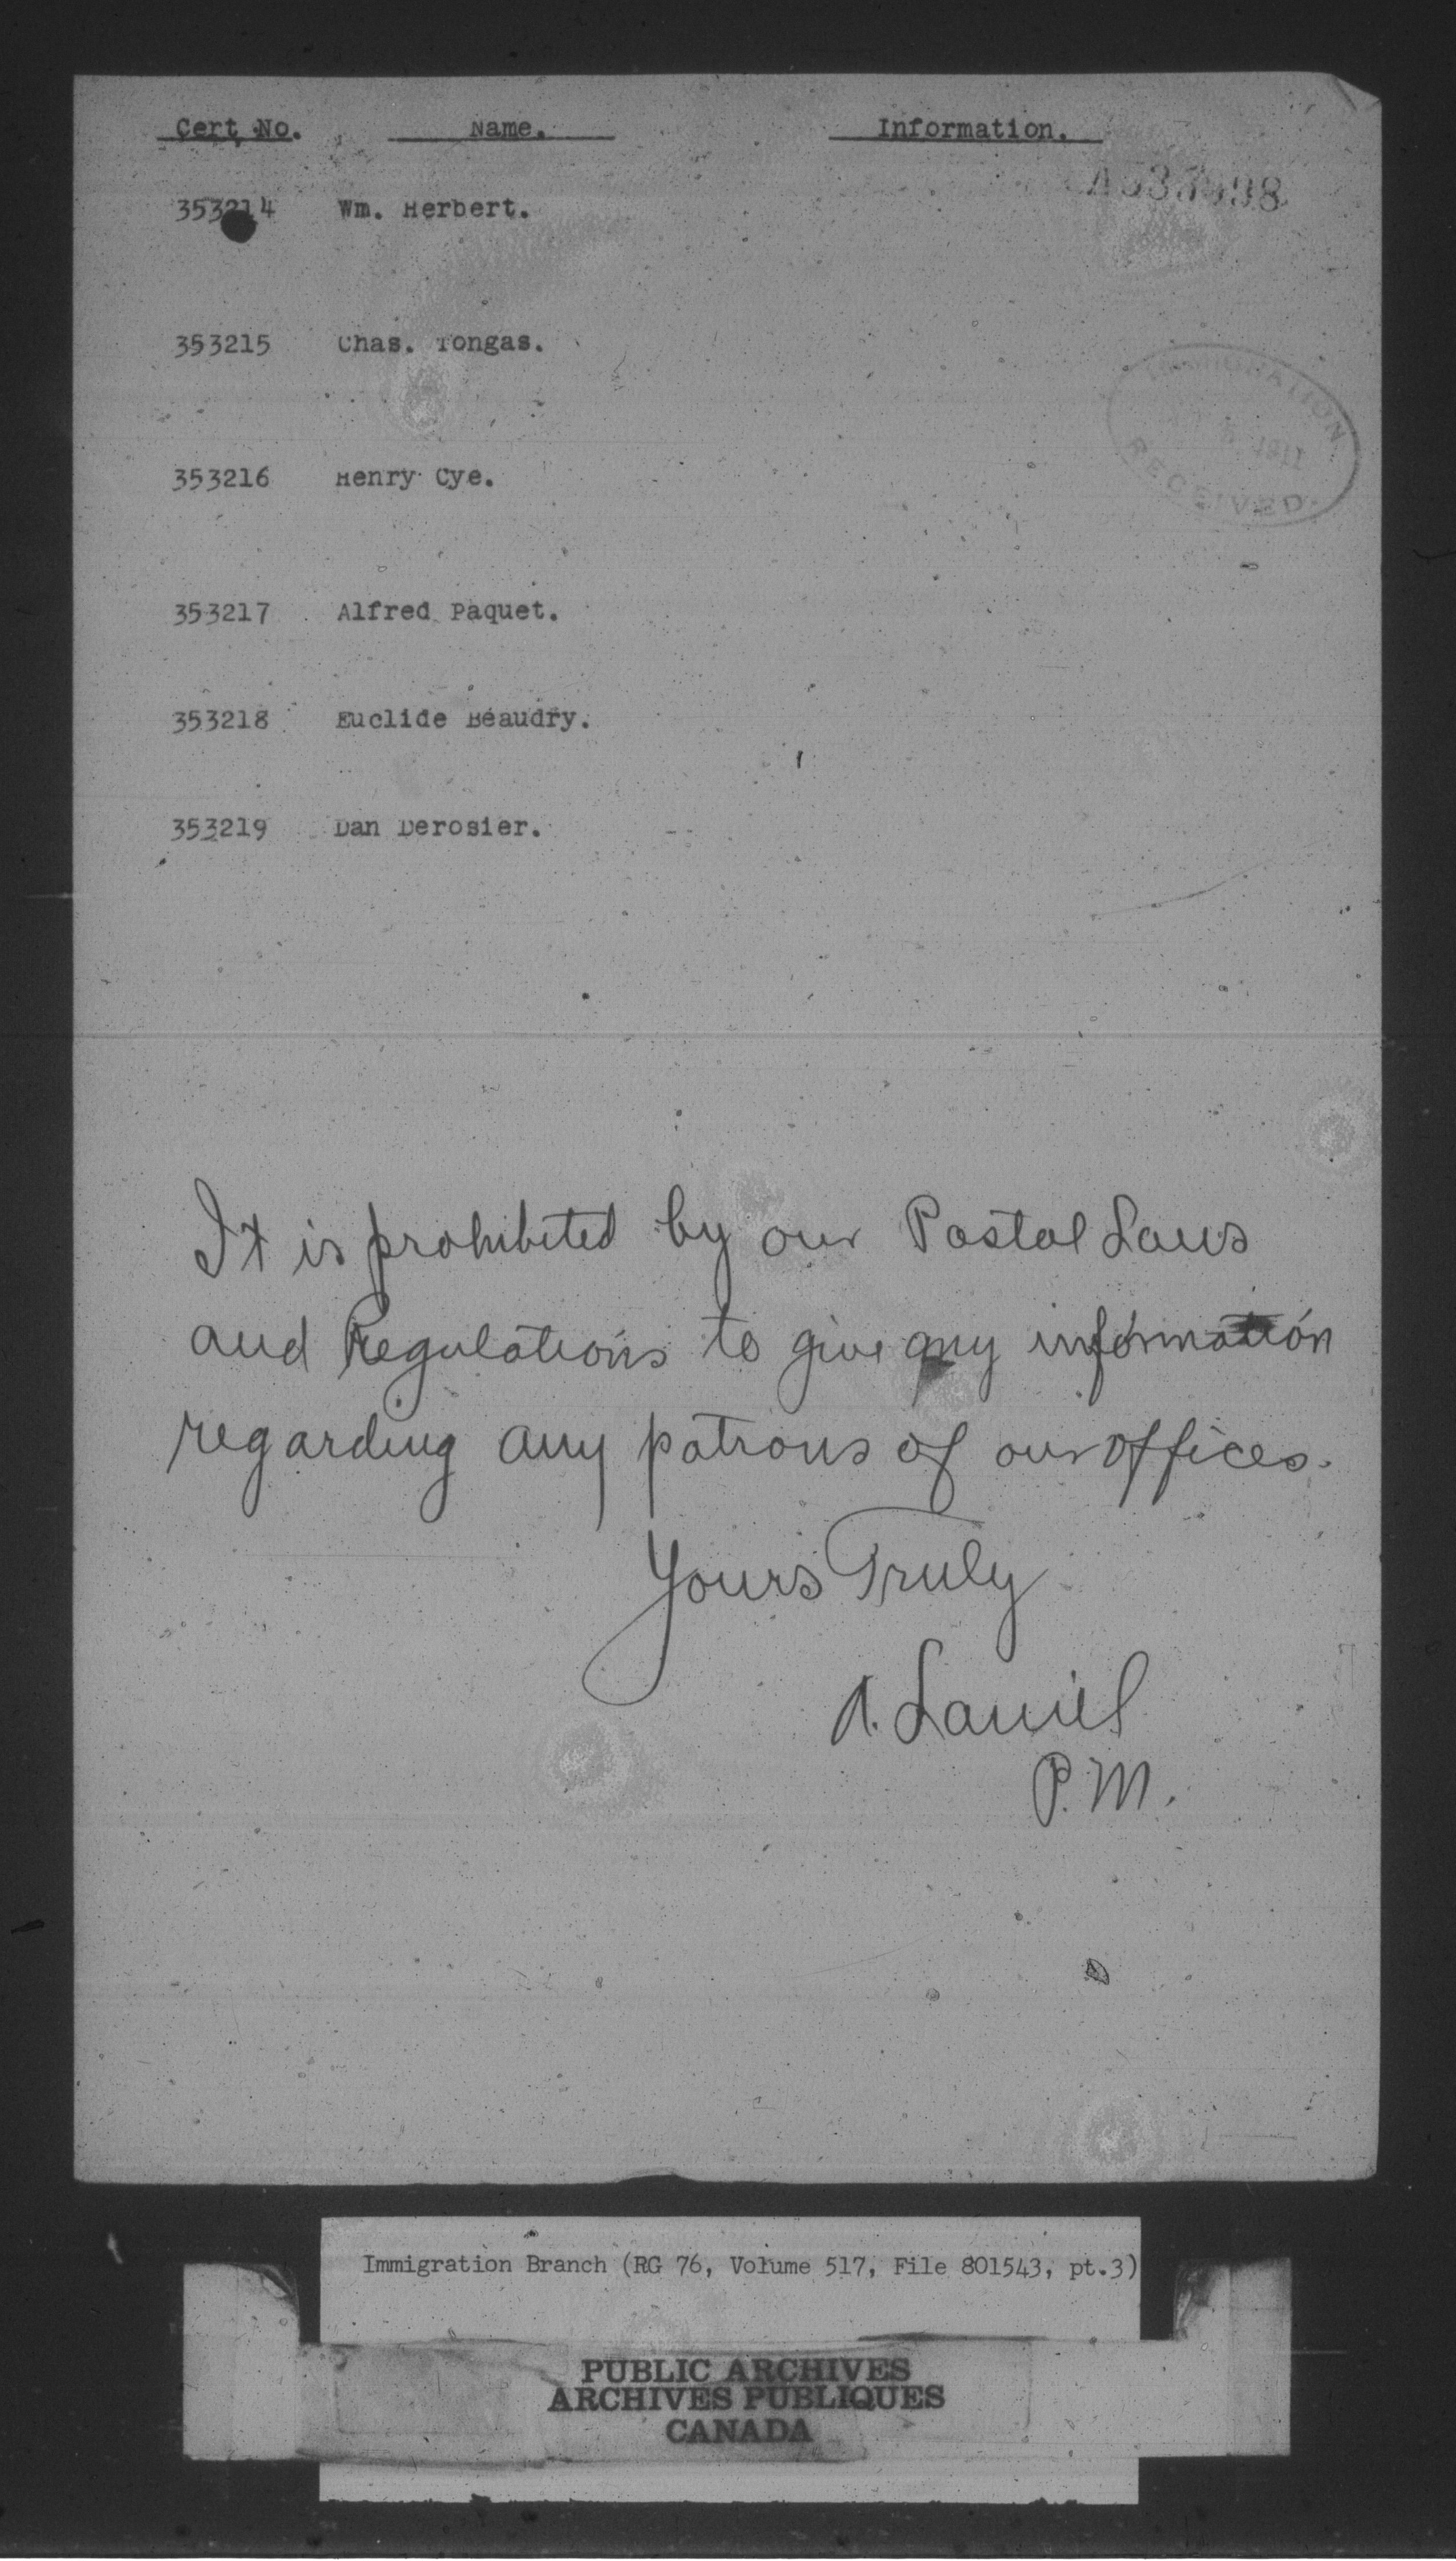 Cert No. Name. Information.
353214 Wm. Herbert.
353215 Chas. Tongas.
IMMIGRATION
1911
RECEIVED
353216 Henry Cye.
353217 Alfred Paquet.
353218 Euclide Beaudry.
353219 Dan Derosier.
It is prohibited by our Postal Laws
and Regulations to give any information
regarding any patrons of our offices.
Yours Truly
A.
P.M.
Immigration Branch (RG 76, Volume 517, File 801543, pt.3)
PUBLIC ARCHIVES
ARCHIVES PUBLIQUES
CANADA